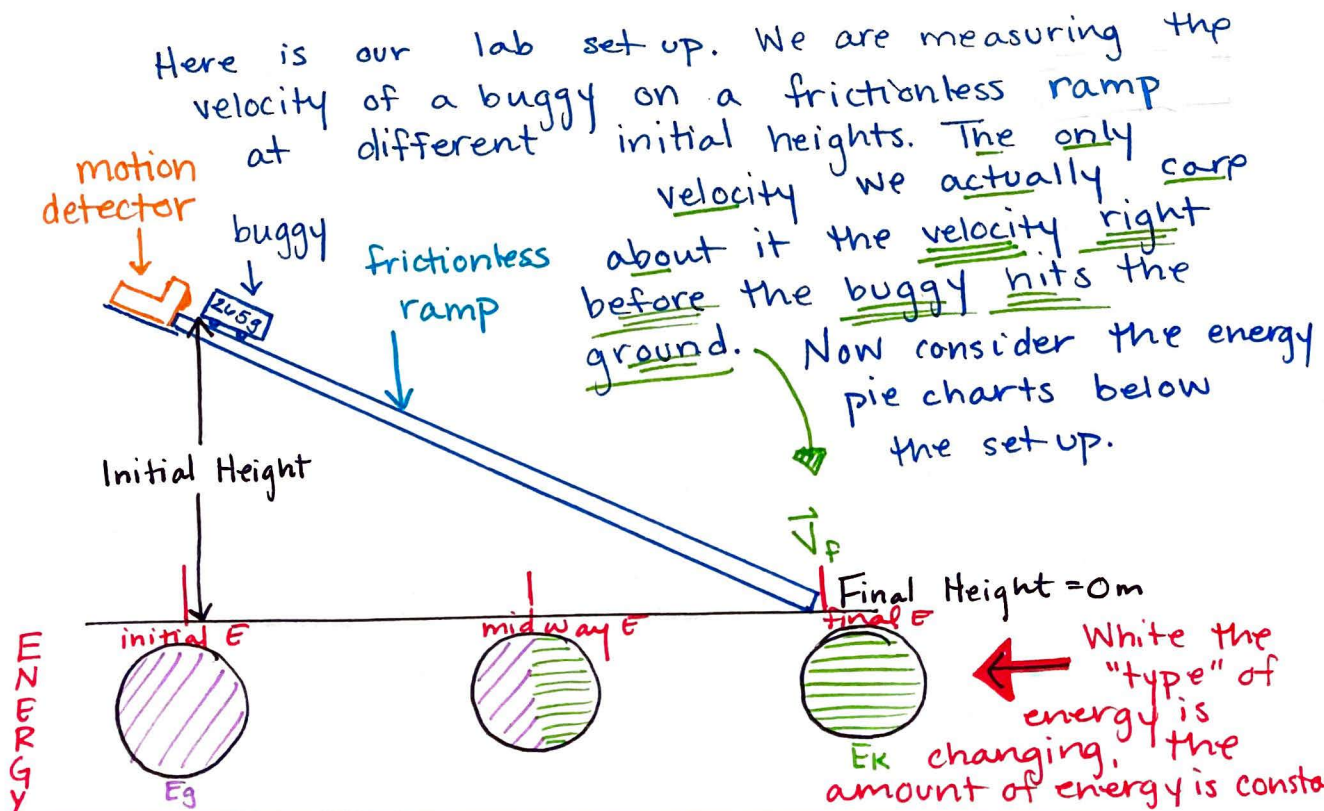 Here is our lab set up. We are measuring the
velocity of a buggy on a frictionless ramp
at different initial heights. The only
velocity we actually care
about it the velocity right
before the buggy hits the
ground. Now consider the energy
pie charts below
the set up.
motion
detector
buggy
265g
frictionless
ramp
Initial Height
V f
Final Height = 0m
initial E
midway E
final E
ENERGY
Eg
EK
White the
"type" of
energy is
changing, the
amount of energy is consta